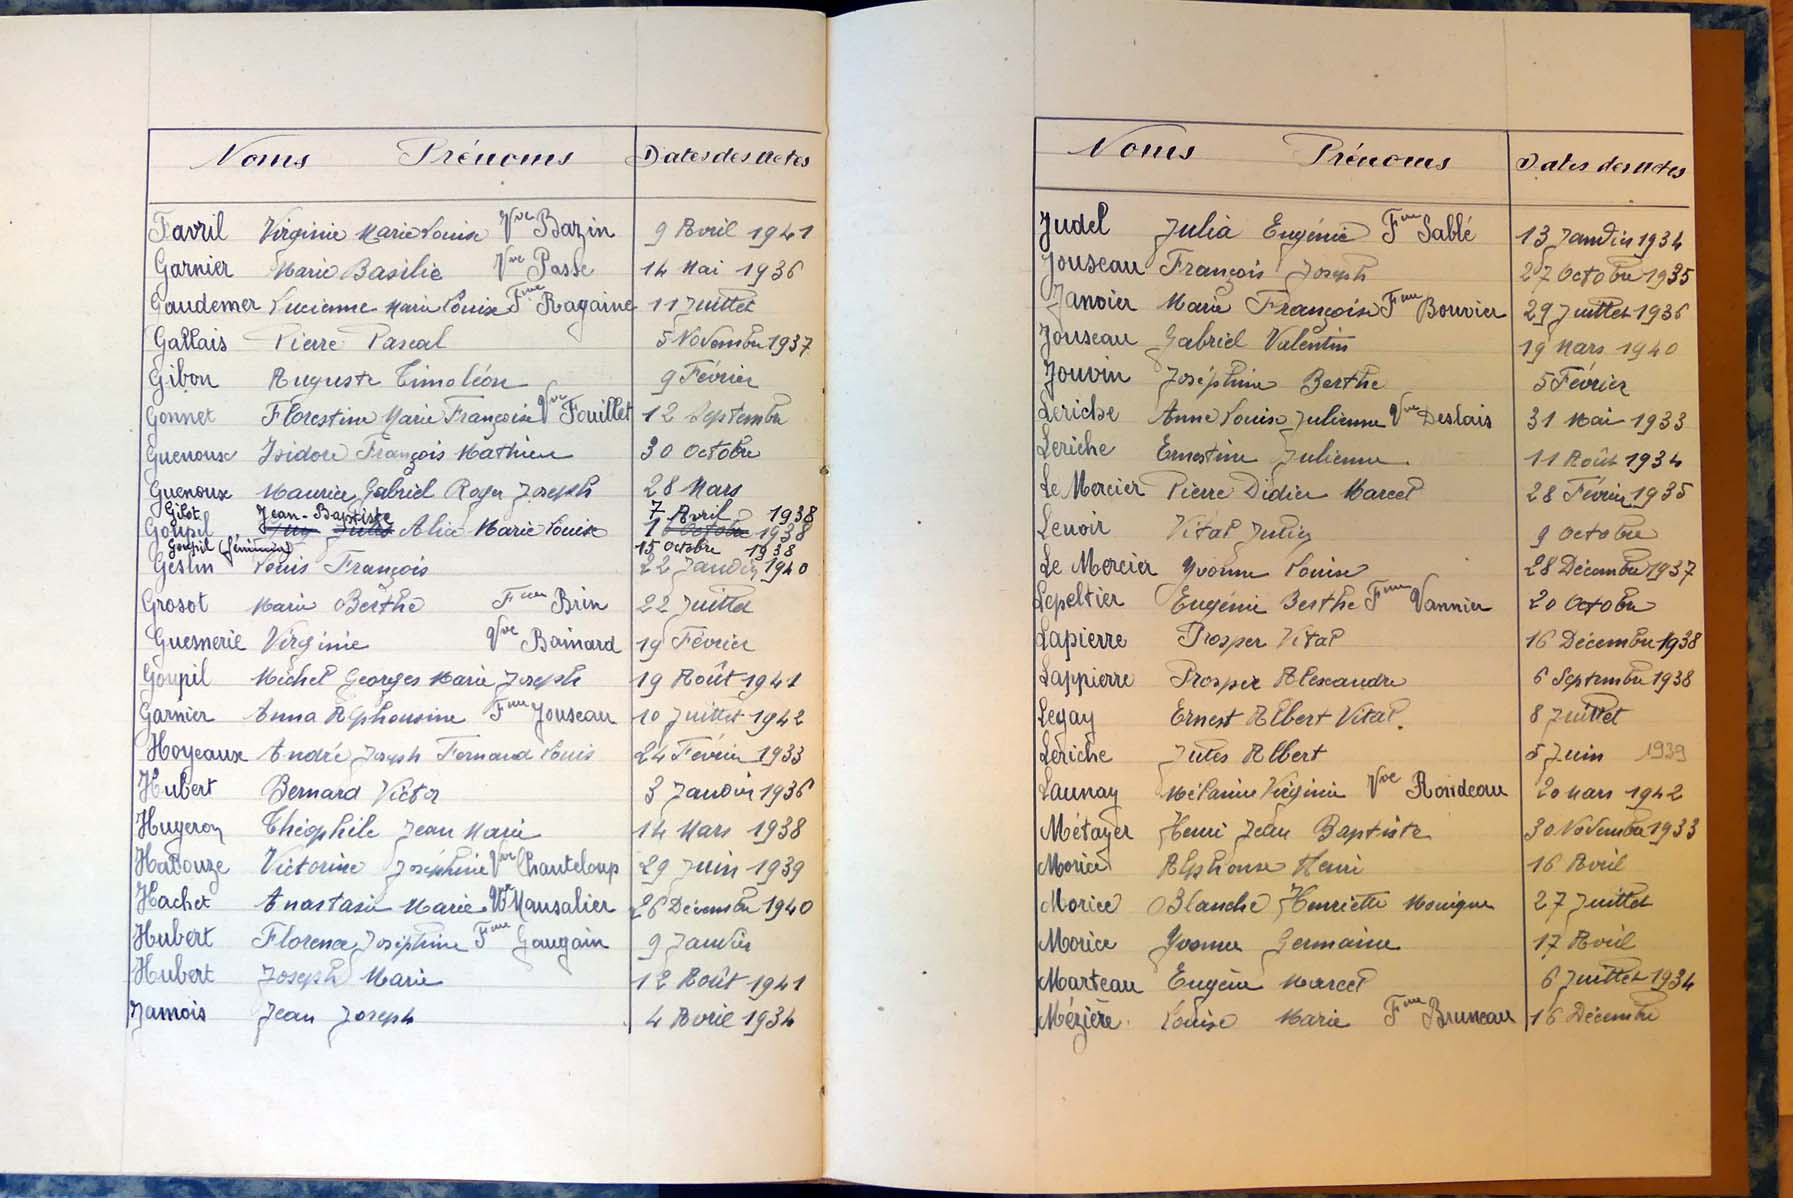 Noms Prénoms Dates des Actes
Favril Virginie Marie Louise Vve Bazin 9 Avril 1941
Garnier Marie Basilie Vve Passe 14 Mai 1936
Gaudemer Lucienne Marie Louise Fme Ragaine 11 Juillet
Gallais Pierre Pascal 5 Novembre 1937
Gibon Auguste Timoléon 9 Février
Gonnet Florestine Marie Françoise Vve Fouillet 12 Septembre
Guenoux Isidore François Mathieu 30 Octobre
Guenoux Maurice Gabriel Roger Joseph 28 Mars
Gilot Jean-Baptiste 7 Avril 1938
Goupil Guy Jules Alice Marie Louise 1 Octobre 1938
Goupil (féminin) 15 Octobre 1938
Geslin Louis François 22 Janvier 1940
Grosot Marie Berthe Fme Brin 22 Juillet
Guesnerie Virginie Vve Bainard 19 Février
Goupil Michel Georges Marie Joseph 19 Août 1941
Garnier Anna Alphonsine Fme Jouseau 10 Juillet 1942
Hoyeaux André Joseph Fernand Louis 24 Février 1933
Hubert Bernard Victor 3 Janvier 1936
Hugeron Théophile Jean Marie 14 Mars 1938
Halouze Victorine Joséphine Vve Chanteloup 29 Juin 1939
Hachet Anastasie Marie Vve Mansalier 26 Décembre 1940
Hubert Florence Joséphine Fme Gaugain 9 Janvier
Hubert Joseph Marie 12 Août 1941
Jamois Jean Joseph 4 Avril 1934
Noms Prénoms Dates des Actes
Judel Julia Eugénie Fme Sablé 13 Janvier 1934
Jouseau François Joseph 27 Octobre 1935
Janvier Marie Françoise Fme Bouvier 29 Juillet 1936
Jouseau Gabriel Valentin 19 Mars 1940
Jouvin Joséphine Berthe 5 Février
Leriche Anne Louise Julienne Vve Deslais 31 Mai 1933
Leriche Ernestine Julienne 11 Août 1934
Le Mercier Pierre Didier Marcel 28 Février 1935
Lenoir Vital Julien 9 Octobre
Le Mercier Yvonne Louise 28 Décembre 1937
Lepeltier Eugénie Berthe Fme Vannier 20 Octobre
Lapierre Prosper Vital 16 Décembre 1938
Lappierre Prosper Alexandre 6 Septembre 1938
Legay Ernest Albert Vital. 8 Juillet
Leriche Jules Albert 5 Juin 1939
Launay Mélanie Virginie Vve Rondeau 20 Mars 1942
Métayer Henri Jean Baptiste 30 Novembre 1933
Morice Alphonse Henri 16 Avril
Morice Blanche Henriette Monique 27 Juillet
Morice Yvonne Germaine 17 Avril
Marteau Eugène Marcel 6 Juillet 1934
Mézière Louise Marie Fme Bruneau 16 Décembre